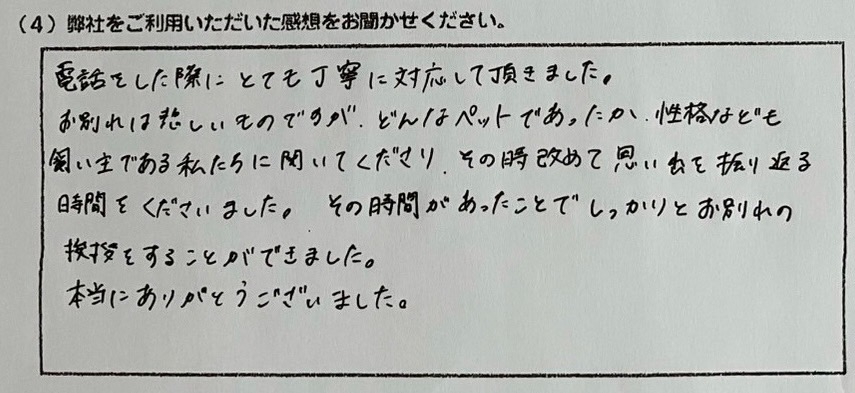 (4) 弊社をご利用いただいた感想をお聞かせください。
電話をした際にとても丁寧に対応して頂きました。
お別れは悲しいものですが、どんなペットであったか、性格なども
飼い主である私たちに聞いてくださり、その時改めて思い出を振り返る
時間をくださいました。 その時間があったことでしっかりとお別れの
挨拶をすることができました。
本当にありがとうございました。